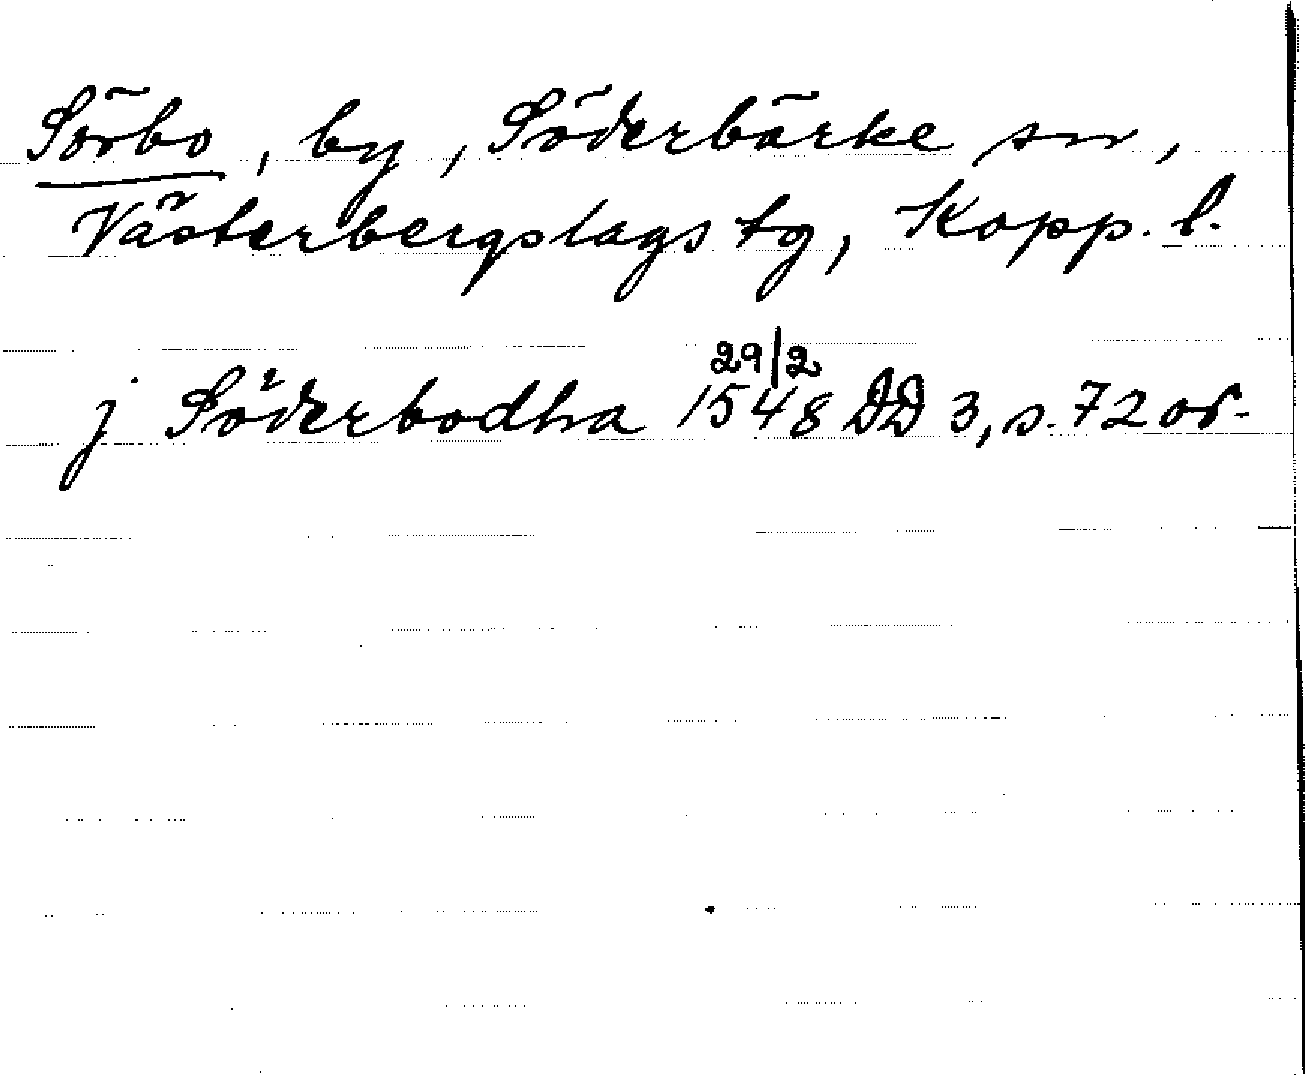 Sörbo, by, Söderbärke sn,
Västerbergslags tg, Kopp. l.
29/2
j Söderbodha 1548 DD 3, s. 72 or.